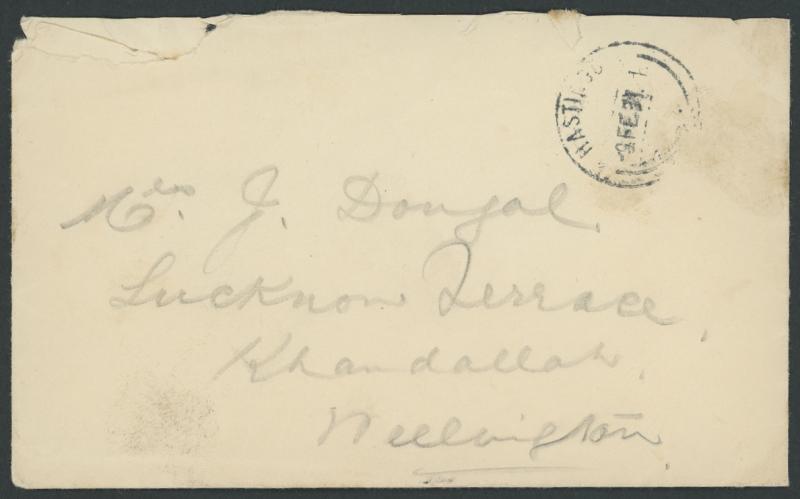 HASTINGS
9 FE 31
Mrs. J. Dougal,
Lucknow Terrace,
Khandallah,
Wellington